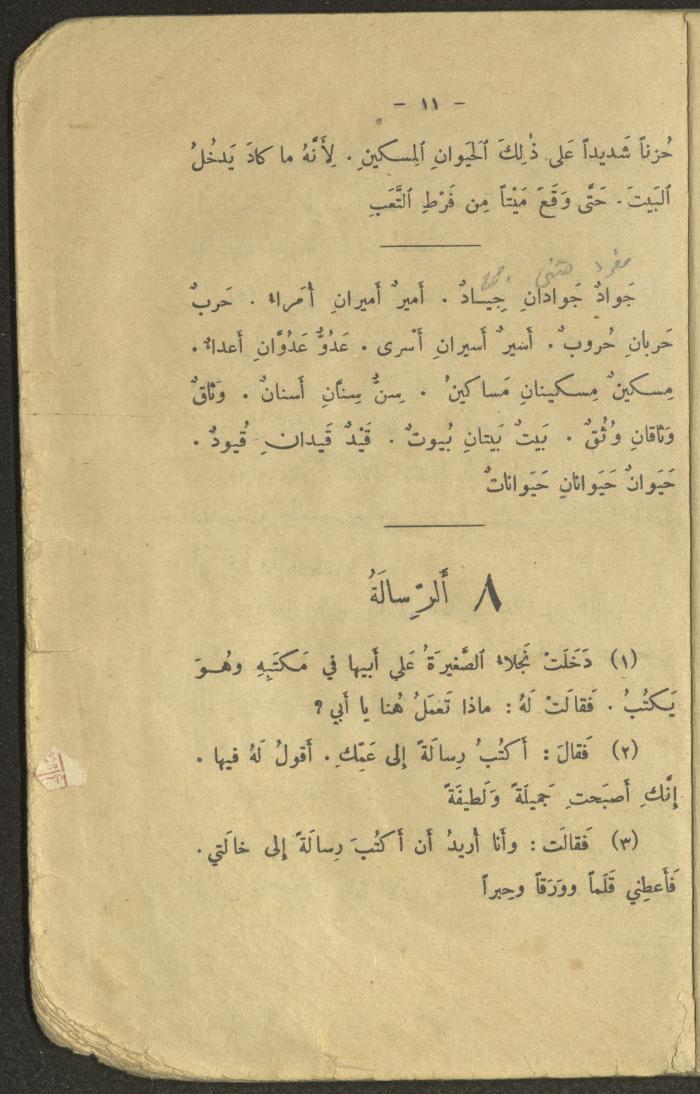 - ١١ -
حُزناً شَديداً عَلى ذٰلِكَ ٱلْحَيوانِ ٱلمِسكينِ . لِأَنَّهُ ما كادَ يَدخُلُ
ٱلبَيتَ . حَتَّى وَقَعَ مَيْتاً مِن فَرْطِ ٱلتَّعَبِ
مفرد مثنى جمع
جَوادٌ جَوادَانِ جِيـادٌ . أَميرٌ أَميرانِ أُمَراءُ . حَربٌ
حَربانِ حُروبٌ . أَسيرٌ أَسيرانِ أَسْرى . عَدُوٌّ عَدُوَّانِ أَعداءٌ .
مِسكينٌ مِسكينانِ مَساكينُ . سِنٌّ سِنَّانِ أَسنانٌ . وَثاقٌ
وَثاقانِ وُثُقٌ . بَيتٌ بَيتانِ بُيوتٌ . قَيْدٌ قَيدانِ قُيودٌ .
حَيَوانٌ حَيَوانانِ حَيَواناتٌ
٨ أَلرِّسالَةُ
(١) دَخَلَتْ نَجلاءُ ٱلصَّغيرَةُ عَلى أَبيها في مَكتَبِهِ وهُـوَ
يَكتُبُ . فَقالَتْ لَهُ : ماذا تَعمَلُ هُنا يا أَبي ؟
(٢) فَقالَ : أَكتُبُ رِسالَةً إِلى عَمِّكِ . أَقولُ لَهُ فيها .
إِنَّكِ أَصبَحتِ جَميلَةً وَلَطيفَةً
(٣) فَقالَت : وأَنا أُريدُ أَن أَكتُبَ رِسالَةً إِلى خالَتي .
فَأَعطِني قَلَماً ووَرَقاً وحِبراً